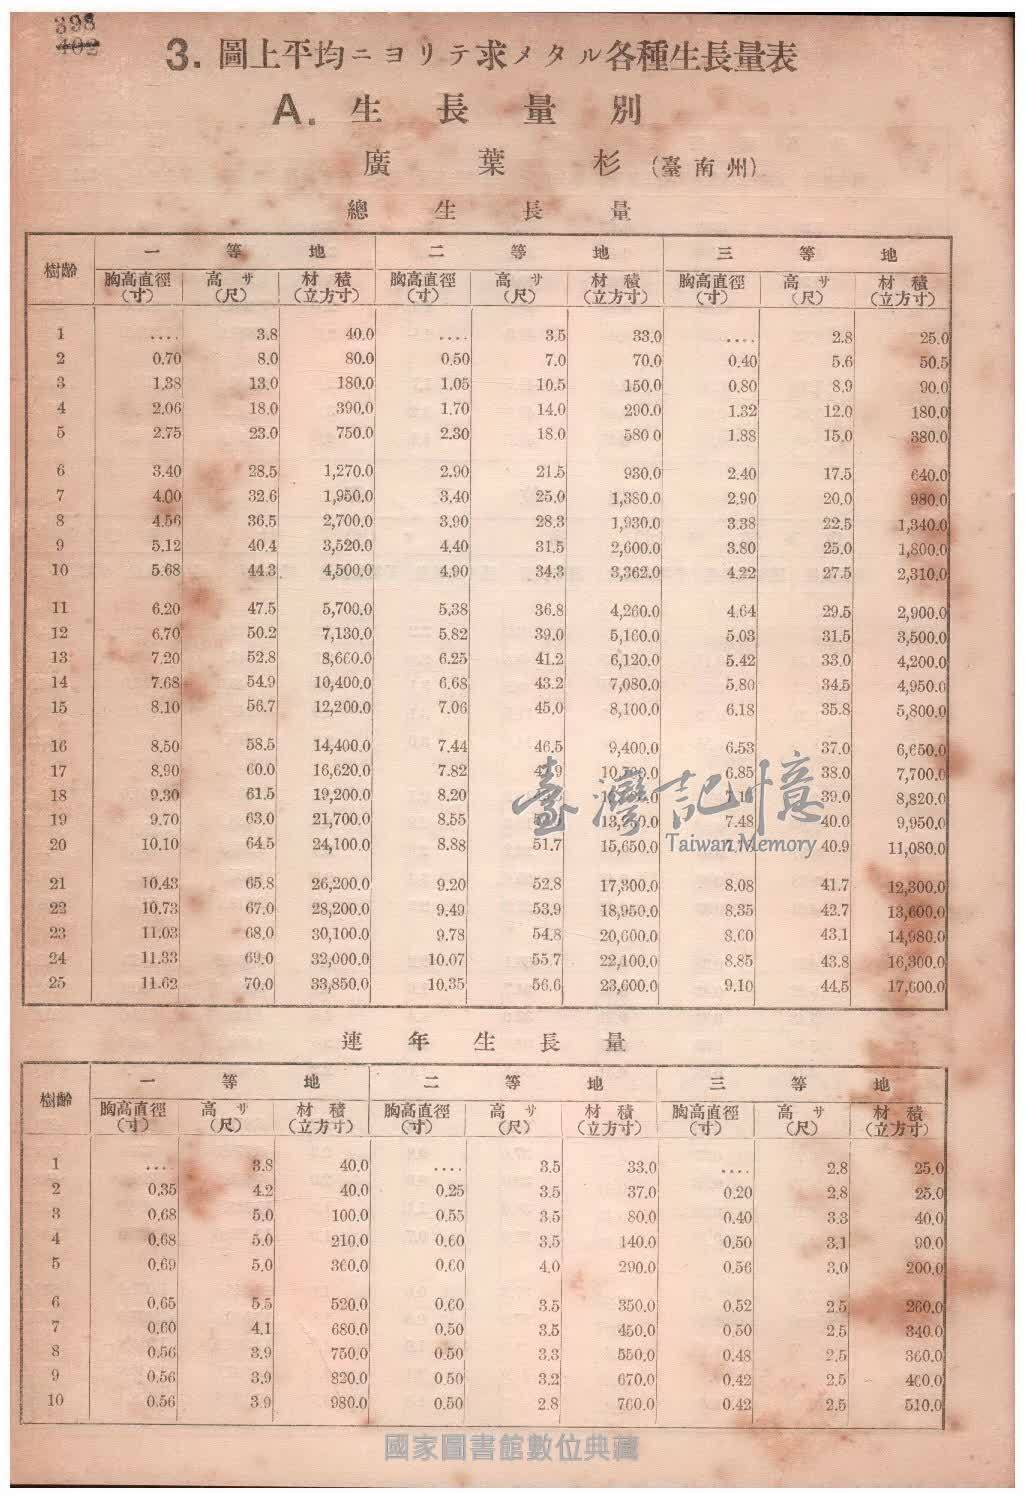 398
402
3. 圖上平均ニヨリテ求メタル各種生長量表
A. 生長量別
廣葉杉 (臺南州)
總生長量
樹齡 一等地 二等地 三等地
胸高直徑(寸) 高サ(尺) 材積(立方寸) 胸高直徑(寸) 高サ(尺) 材積(立方寸) 胸高直徑(寸) 高サ(尺) 材積(立方寸)
1 .... 3.8 40.0 .... 3.5 33.0 .... 2.8 25.0
2 0.70 8.0 80.0 0.50 7.0 70.0 0.40 5.6 50.5
3 1.38 13.0 180.0 1.05 10.5 150.0 0.80 8.9 90.0
4 2.06 18.0 390.0 1.70 14.0 290.0 1.32 12.0 180.0
5 2.75 23.0 750.0 2.30 18.0 580.0 1.88 15.0 380.0
6 3.40 28.5 1,270.0 2.90 21.5 930.0 2.40 17.5 640.0
7 4.00 32.6 1,950.0 3.40 25.0 1,380.0 2.90 20.0 980.0
8 4.56 36.5 2,700.0 3.90 28.3 1,930.0 3.38 22.5 1,340.0
9 5.12 40.4 3,520.0 4.40 31.5 2,600.0 3.80 25.0 1,800.0
10 5.68 44.3 4,500.0 4.90 34.3 3,362.0 4.22 27.5 2,310.0
11 6.20 47.5 5,700.0 5.38 36.8 4,260.0 4.64 29.5 2,900.0
12 6.70 50.2 7,130.0 5.82 39.0 5,160.0 5.03 31.5 3,500.0
13 7.20 52.8 8,660.0 6.25 41.2 6,120.0 5.42 33.0 4,200.0
14 7.68 54.9 10,400.0 6.68 43.2 7,080.0 5.80 34.5 4,950.0
15 8.10 56.7 12,200.0 7.06 45.0 8,100.0 6.18 35.8 5,800.0
16 8.50 58.5 14,400.0 7.44 46.5 9,400.0 6.53 37.0 6,650.0
17 8.90 60.0 16,620.0 7.82 6.85 38.0 7,700.0
18 9.30 61.5 19,200.0 8.20 39.0 8,820.0
19 9.70 63.0 21,700.0 8.55 7.48 40.0 9,950.0
20 10.10 64.5 24,100.0 8.88 51.7 15,650.0 40.9 11,080.0
21 10.43 65.8 26,200.0 9.20 52.8 17,300.0 8.08 41.7 12,300.0
22 10.73 67.0 28,200.0 9.49 53.9 18,950.0 8.35 42.7 13,600.0
23 11.03 68.0 30,100.0 9.78 54.8 20,600.0 8.60 43.1 14,980.0
24 11.33 69.0 32,000.0 10.07 55.7 22,100.0 8.85 43.8 16,300.0
25 11.62 70.0 33,850.0 10.35 56.6 23,600.0 9.10 44.5 17,600.0
臺灣記憶
Taiwan Memory
連年生長量
樹齡 一等地 二等地 三等地
胸高直徑(寸) 高サ(尺) 材積(立方寸) 胸高直徑(寸) 高サ(尺) 材積(立方寸) 胸高直徑(寸) 高サ(尺) 材積(立方寸)
1 .... 3.8 40.0 .... 3.5 33.0 .... 2.8 25.0
2 0.35 4.2 40.0 0.25 3.5 37.0 0.20 2.8 25.0
3 0.68 5.0 100.0 0.55 3.5 80.0 0.40 3.3 40.0
4 0.68 5.0 210.0 0.60 3.5 140.0 0.50 3.1 90.0
5 0.69 5.0 360.0 0.60 4.0 290.0 0.56 3.0 200.0
6 0.65 5.5 520.0 0.60 3.5 350.0 0.52 2.5 260.0
7 0.60 4.1 680.0 0.50 3.5 450.0 0.50 2.5 340.0
8 0.56 3.9 750.0 0.50 3.3 550.0 0.48 2.5 360.0
9 0.56 3.9 820.0 0.50 3.2 670.0 0.42 2.5 460.0
10 0.56 3.9 980.0 0.50 2.8 760.0 0.42 2.5 510.0
國家圖書館數位典藏